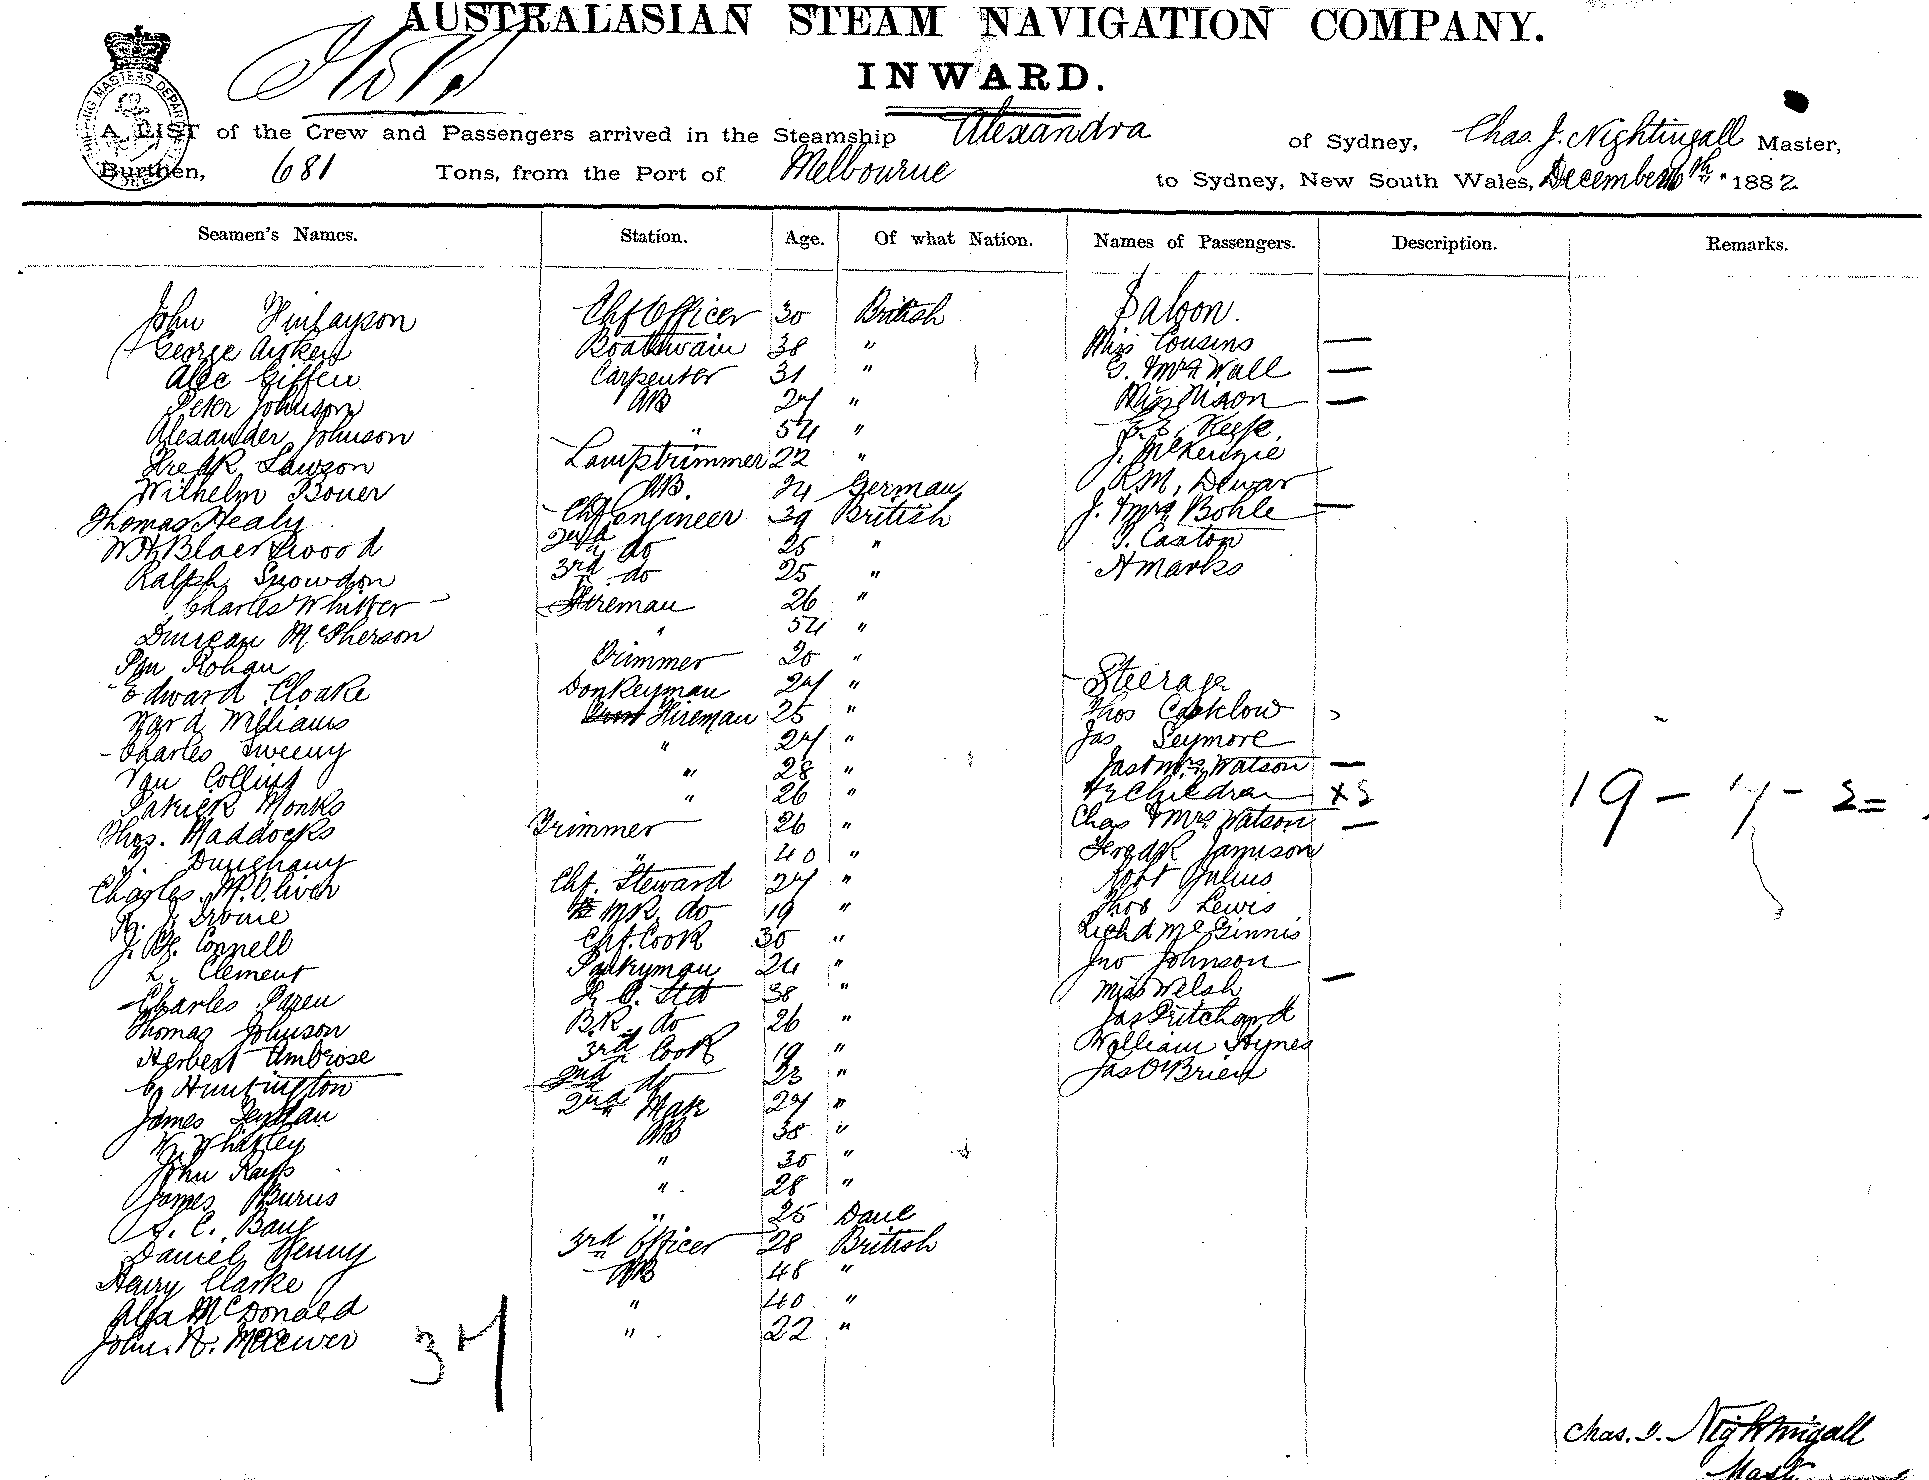 AUSTRALASIAN STEAM NAVIGATION COMPANY.
INWARD.
A LIST of the Crew and Passengers arrived in the Steamship Alexandra of Sydney, Chas. J. Nightingall Master,
Burthen, 681 Tons, from the Port of Melbourne to Sydney, New South Wales, December 1882
Seamen's Names. Station. Age. Of what Nation. Names of Passengers. Description. Remarks.
John Finlayson Chf Officer 30 British Saloon.
George Aitken Boatswain 38 " Miss Cousins —
Alec Giffen Carpenter 31 " & Mrs Wall —
Peter Johnson AB 27 " Miss Nixon —
Alexander Johnson " 54 "
Fredk Lawson Lamptrimmer 22 " J. McKenzie
Wilhelm Boner AB. 24 German R M, Dewar
Thomas Healy Chf engineer 39 British J. & Mrs Bohle —
W H Blackwood 2nd do 25 " Caxton
Ralph Snowdon 3rd do 25 " H Marks
Charles Whitter Fireman 26 "
Duncan McPherson " 54 "
Rohan Trimmer 20 "
Edward Cloake Donkeyman 27 " Steerage
Ward Williams Fireman 25 " Thos
Charles Sweeny " 27 " Jas Seymore
Collins " 28 " Jas & Mrs Watson —
Patrick Monks " 26 " & 2 Children x 2
Thos. Maddocks Trimmer 26 " Chas & Mrs Watson —
" 40 " Fredk Jamison
Charles M. Oliver Chf. Steward 27 " Robt Julius
Irvine do 19 " Thos Lewis
Connell Chf. Cook 30 " Richd McGinnis
L. Clement Pantryman 24 " Jno Johnson
Charles Paren 38 " Miss Welsh —
Thomas Johnson B.R. do 26 " Jas Pritchard
Herbert Ambrose 3rd Cook 19 " William Hynes
Huntington 2nd do 23 " Jas O'Brien
James 2nd Mate 27 "
W. Whatley AB 38 "
John " 30 "
James Burns " 28 "
C. Bang " 25 Dane
Daniel Kenny 3rd Officer 28 British
Henry Clarke AB 48 "
McDonald " 40 "
John. " 22 "
37
19 - 4 - 2 =
Chas. J. Nightingall